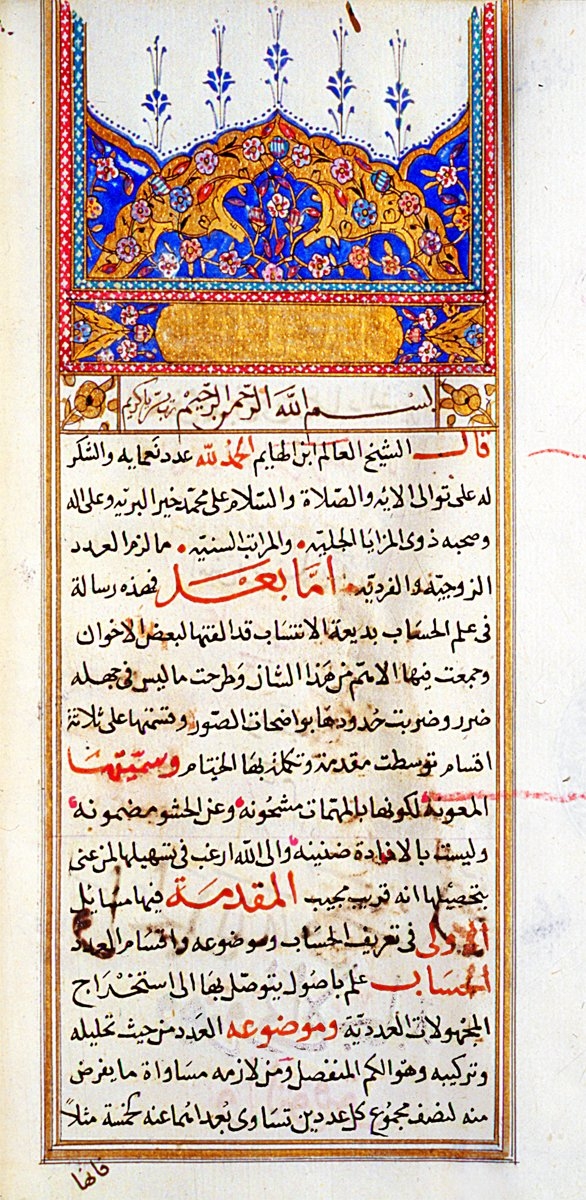 بسم الله الرحمن الرحيم رب يسر يا كريم
قال الشيخ العالم ابن الهايم الحمد لله عدد نعمايه والشكر
له على توالى الايه والصلاة والسلام على محمد خير البريه وعلى اله
وصحبه ذوى المزايا الجليه والمراتب السنيه ما لزم العدد
الزوجيه والفرديه اما بعد فهذه رسالة
فى علم الحساب بديعة الانتساب قد الفتها لبعض الاخوان
وجمعت فيها الاهم من هذا الشان وطرحت ما ليس فى جهله
ضرر وضربت حدودها بواضحات الصور وقسمتها على ثلاثة
اقسام توسطت مقدمة وتكملة بها الختام وسميتها
المعونة لكونها بالمهمات مشحونه وعن الحشو مضمونه
وليست بالافادة ضنينه والى الله ارغب فى تسهيلها لمن عنى
بتحصيلها انه قريب مجيب المقدمة فيها مسايل
الاولى فى تعريف الحساب وموضوعه واقسام العدد
الحساب علم باصول يتوصل بها الى استخراج
المجهولات العددية وموضوعه العدد من حيث تحليله
وتركيبه وهو الكم المنفصل ومن لازمه مساواة ما يفرض
منه لنصف مجموع كل عددين تساوى بعدا هما عنه كخمسة مثلا
فانها